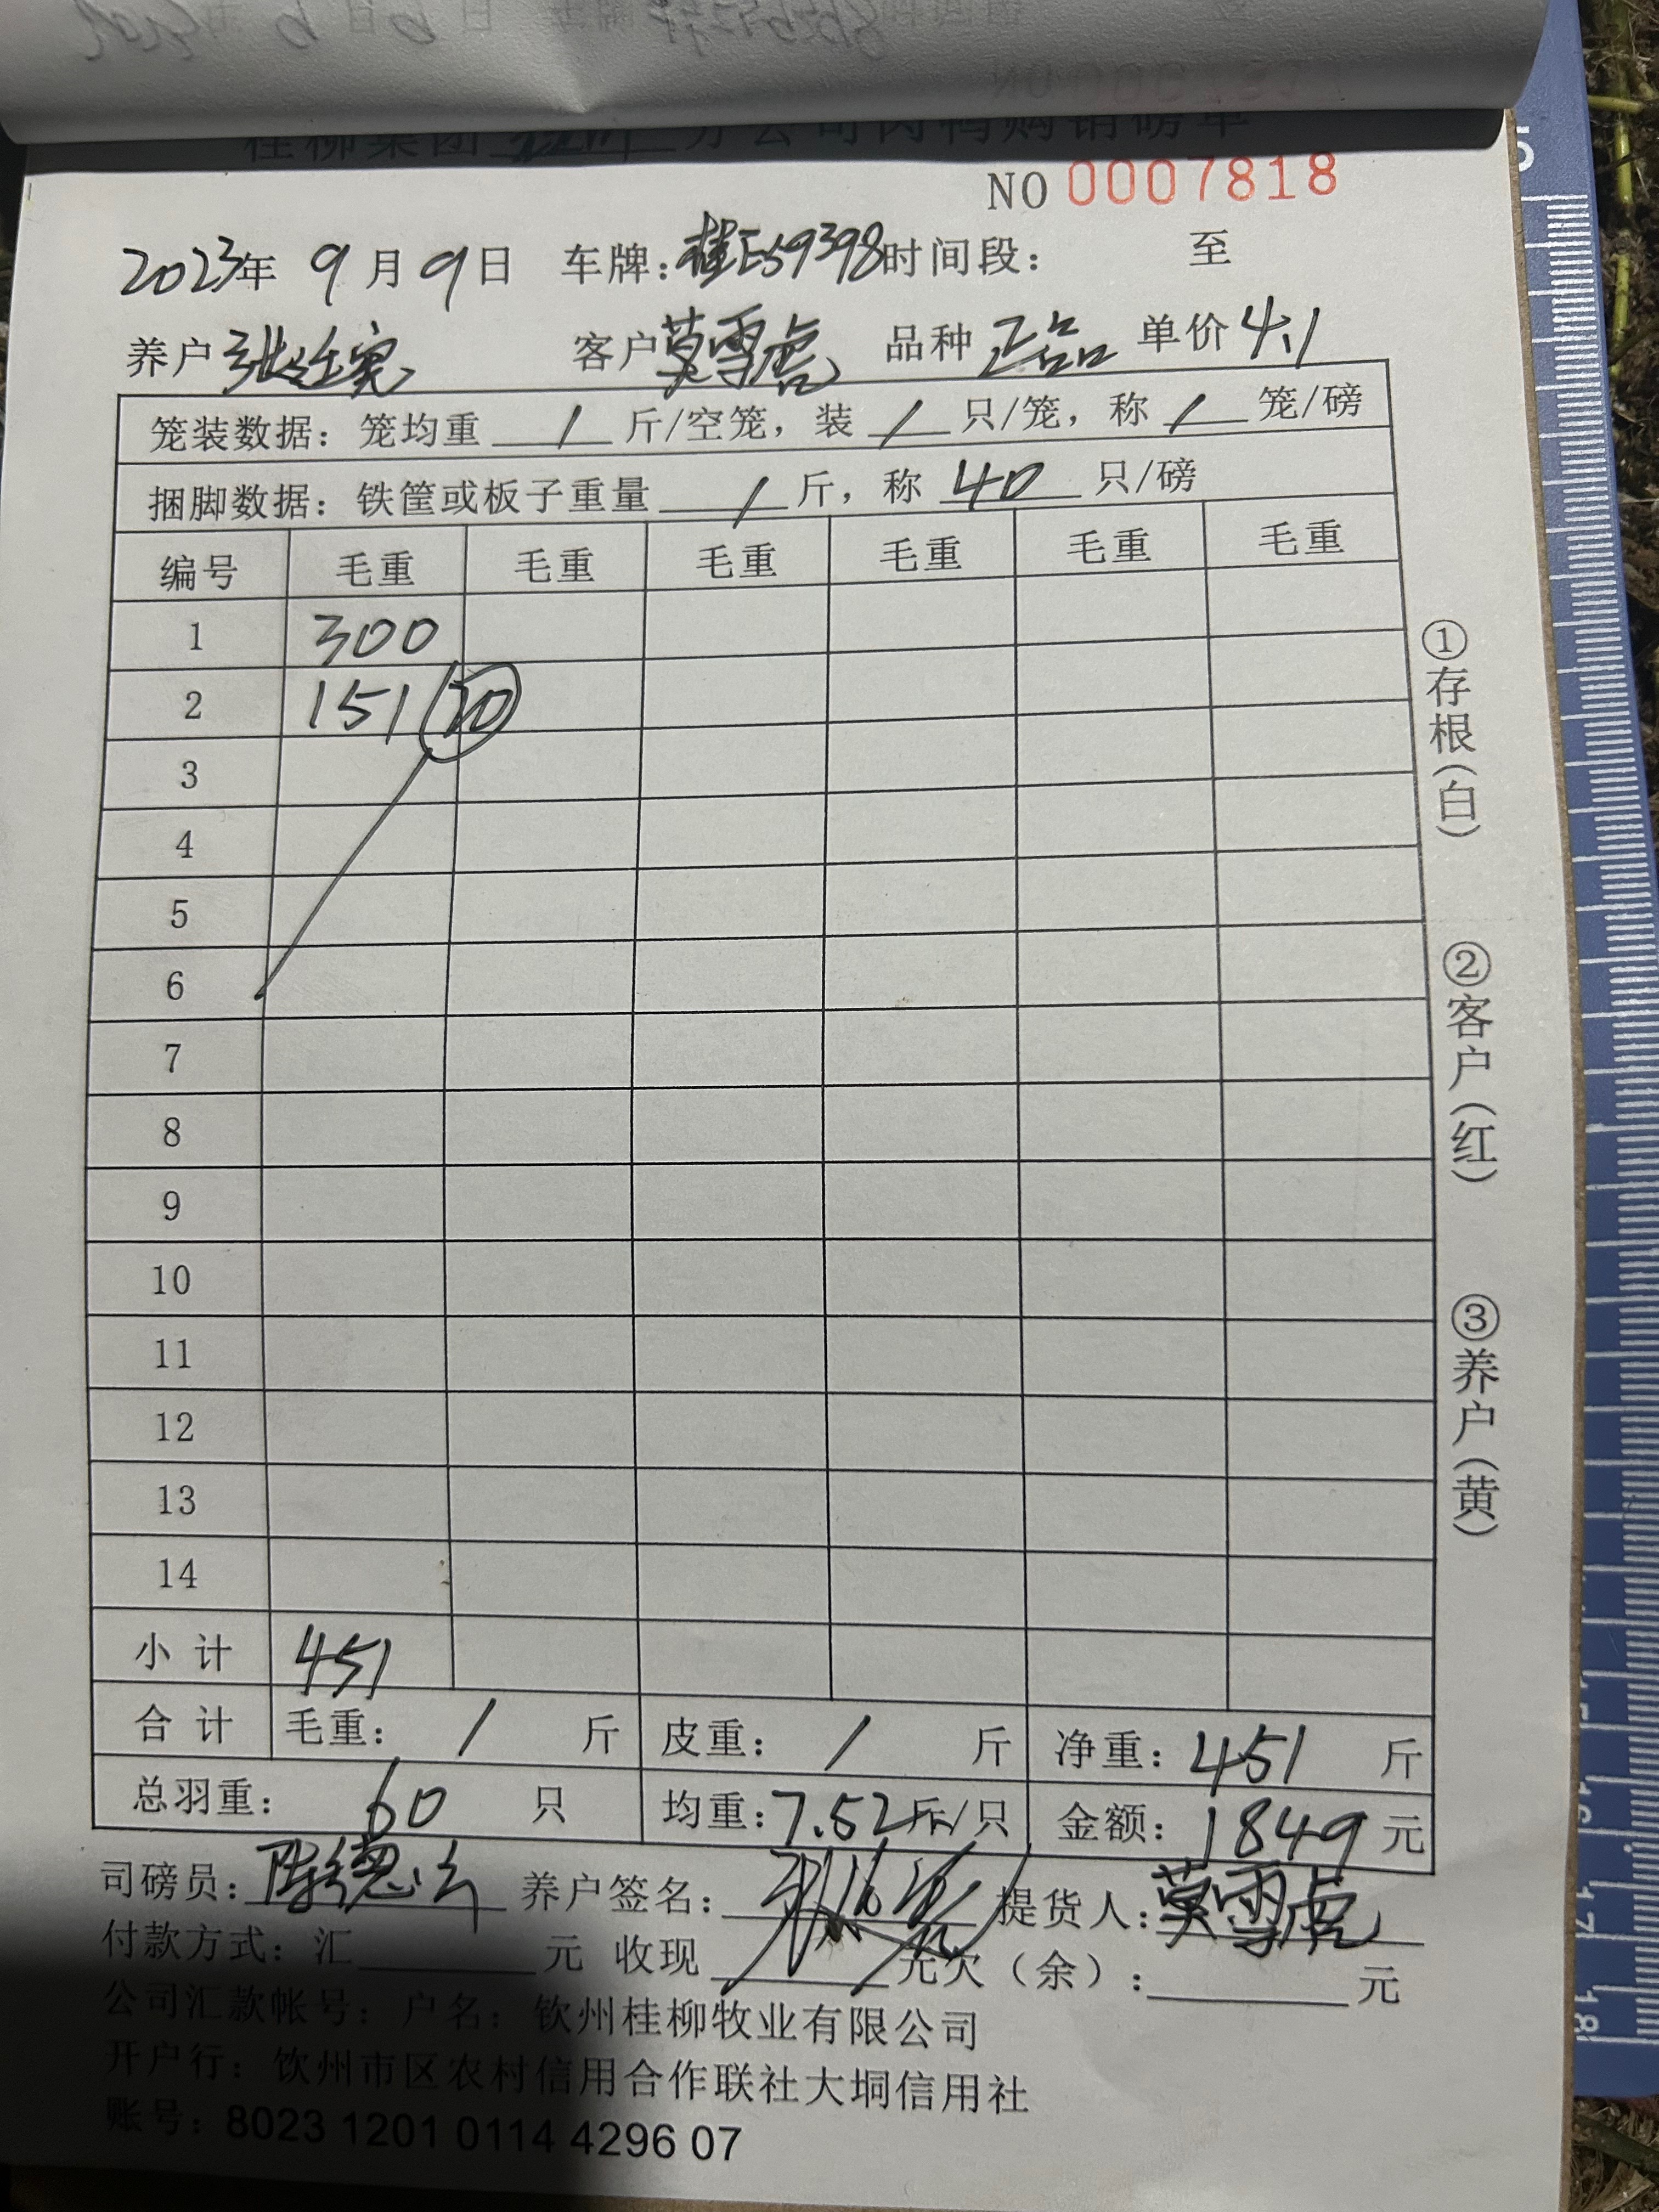 桂柳集团 分公司肉鸭购销磅单
NO 0007818
2023年 9月9日 车牌：桂E59398 时间段： 至
养户 张 客户 莫雪虎 品种 正品 单价 4.1
笼装数据：笼均重 / 斤/空笼，装 / 只/笼，称 / 笼/磅
捆脚数据：铁筐或板子重量 / 斤，称 40 只/磅
编号 毛重 毛重 毛重 毛重 毛重 毛重
1 300
2 151 (20)
3
4
5
6
7
8
9
10
11
12
13
14
小计 451
合计 毛重： / 斤 皮重： / 斤 净重：451 斤
总羽重： 60 只 均重：7.52斤/只 金额：1849 元
司磅员：陈德 养户签名： 提货人：莫雪虎
付款方式：汇 元 收现 元欠（余）： 元
公司汇款帐号：户名：钦州桂柳牧业有限公司
开户行：饮州市区农村信用合作联社大垌信用社
账号：8023 1201 0114 4296 07
①存根（白）
②客户（红）
③养户（黄）